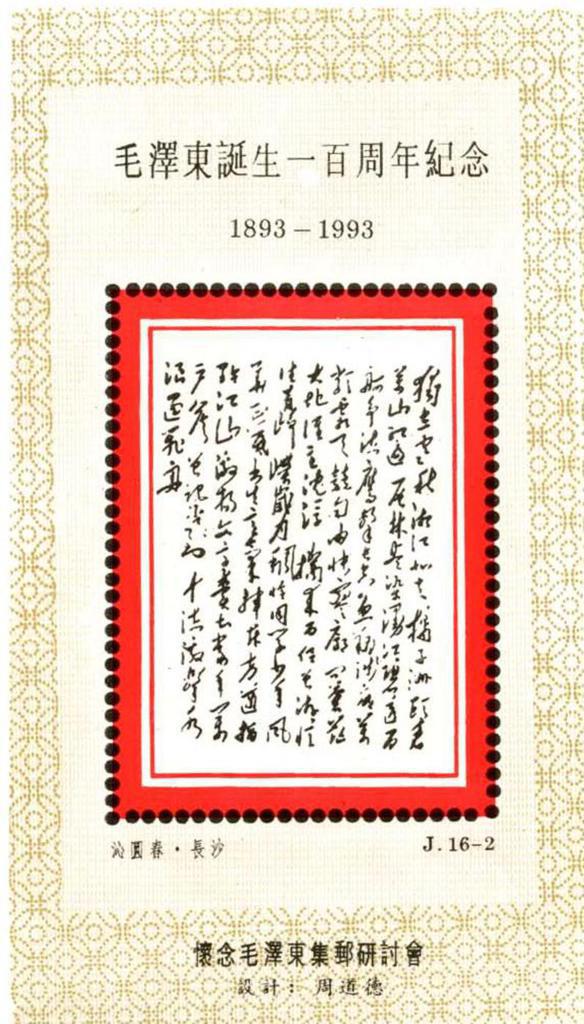 毛澤東誕生一百周年紀念
1893－1993
獨立寒秋湘江北去橘子洲頭看
萬山紅遍層林盡染漫江碧透百
舸爭流鷹擊長空魚翔淺底萬
類霜天競自由悵寥廓問蒼茫
大地誰主沉浮攜來百侶曾游憶
往昔崢嶸歲月稠恰同學少年風
華正茂書生意氣揮斥方遒指
點江山激揚文字糞土當年萬
戶侯曾記否到中流擊水
浪遏飛舟
沁園春·長沙
J.16-2
懷念毛澤東集郵研討會
設計：周道德